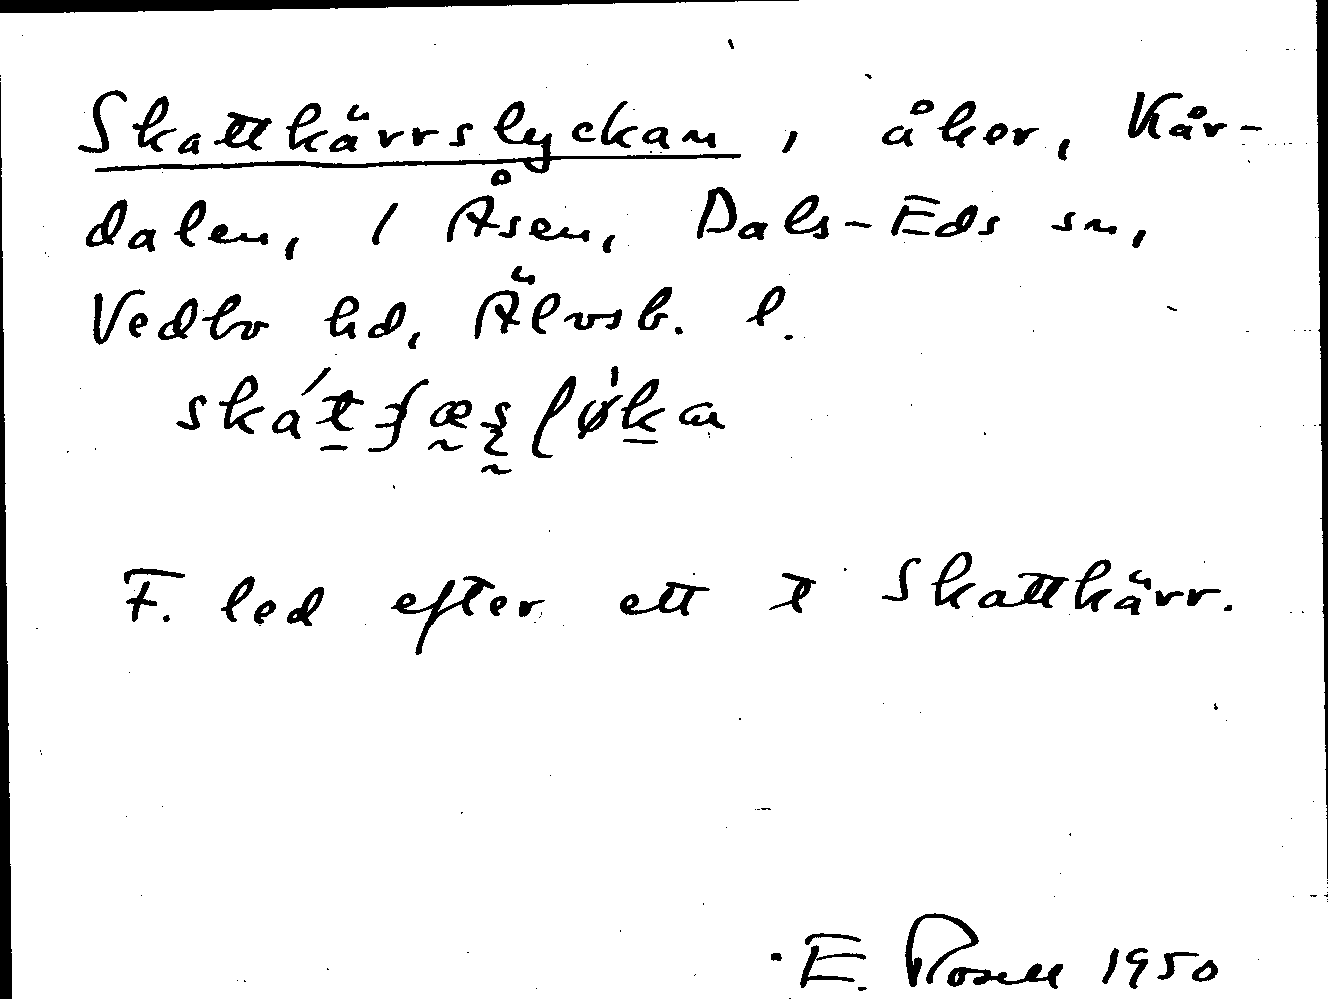 Skattkärrslyckan, åker, Kår-
dalen, / Åsen, Dals-Eds sn,
Vedbo hd, Älvsb. l.
F. led efter ett † Skattkärr.
E. Rosell 1950